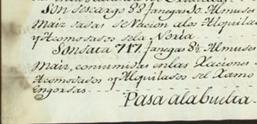 Son de cargo 33 fanegas 10 Almudes
Maiz dadas de Racion a los Alquila
y Acomodados de la Noria
Son data 717 fanegas 8½ Almudes
Maiz, consumidas en las Raciones
Acomodados y Alquilados del Ramo
engordas.
Pasa a la buelta